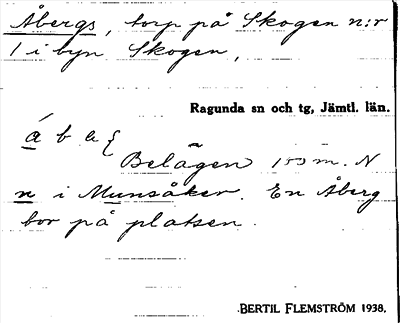 Åbergs, torp på Skogen n:r
1 i byn Skogen,
Ragunda sn och tg, Jämtl. län.
Belägen 150 m. N
n i Munsåker. En Åberg
bor på platsen.
BERTIL FLEMSTRÖM 1938.